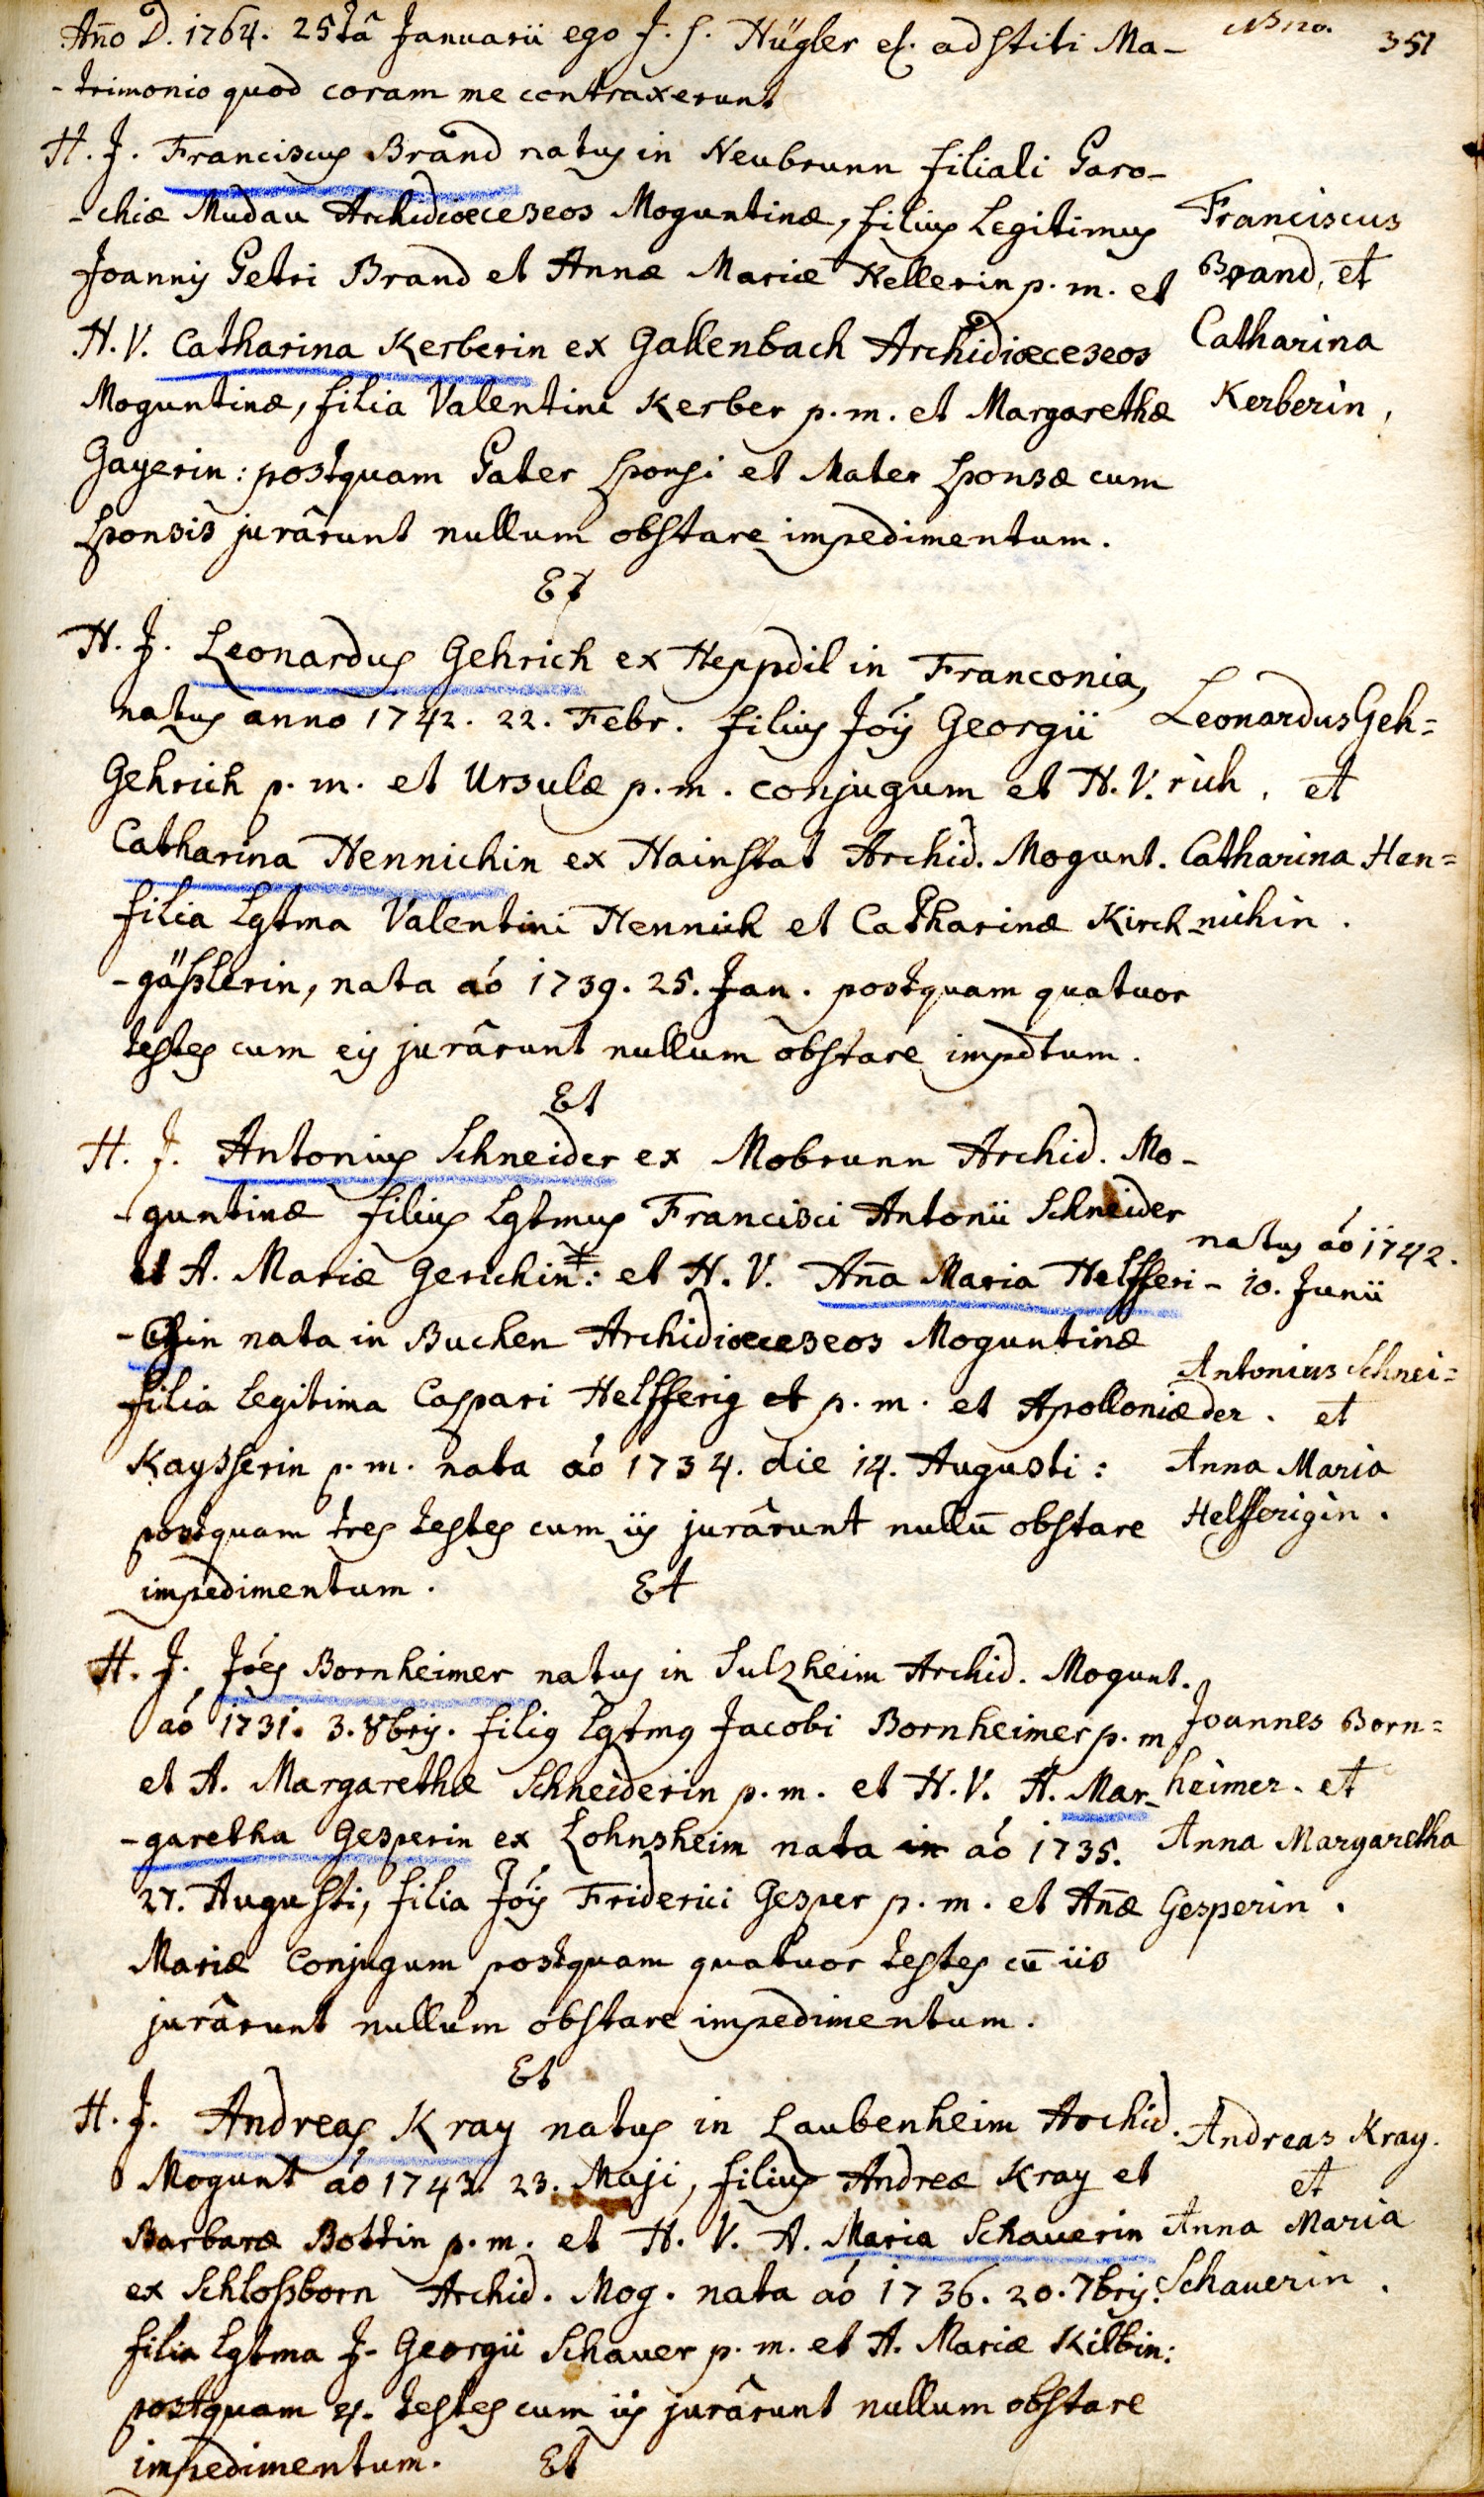 Año D. 1764. 25tâ Januarii ego J. S. Hügler &. adstiti Ma-
-trimonio quod coram me contraxerunt
351
H. J. Franciscus Brand natus in Neubrunn filiali Paro-
-chiæ Mudau Archidiœceseos Moguntinæ, filius Legitimus
Joannis Petri Brand et Annæ Mariæ Hellerin p. m. et
H. V. Catharina Kerberin ex Gallenbach Archidiœceseos
Moguntinæ, filia Valentini Kerber p. m. et Margarethæ
Gayerin: postquam Pater sponsi et Mater sponsæ cum
sponsis jurârunt nullum obstare impedimentum.
Franciscus
Brand, et
Catharina
Kerberin,
Et
H. J. Leonardus Gehrich ex Heppdil in Franconia,
natus anno 1742. 22. Febr. filius Jois Georgii
Gehrich p. m. et Ursulæ p. m. conjugum et H. V.
Catharina Hennichin ex Hainstat Archid. Mogunt.
filia Lgtma Valentini Hennich et Catharinæ Kirch
-gäßlerin, nata aó 1739. 25. Jan. postquam quatuor
testes cum eis jurârunt nullum obstare impdtum.
Leonardus Geh=
rich, et
Catharina Hen=
nichin.
Et
H. J. Antonius Schneider ex Mobrunn Archid. Mo-
-guntinæ filius Lgtmus Francisci Antonii Schneider
et A. Mariæ Gerichin*: et H. V. Aña Maria Helfferi-
-chin nata in Buchen Archidiœceseos Moguntinæ
filia Legitima Caspari Helfferig et p. m. et Apolloniæ
Kaysserin p. m. nata aó 1734. die 14. Augusti:
postquam tres testes cum iis jurârunt nullū obstare
impedimentum. Et
natus aó 1742.
10. Junii
Antonius Schnei=
der. et
Anna Maria
Helfferigin.
H. J. Jóes Bornheimer natus in Sulzheim Archid. Mogunt.
aó 1731. 3. 8bris. filius Lgtmus Jacobi Bornheimer p. m
et A. Margarethæ Schneiderin p. m. et H. V. A. Mar-
-garetha Gesperin ex Lohnsheim nata in aó 1735.
27. Augusti, filia Jóis Friderici Gesper p. m. et Añæ
Mariæ Conjugum postquam quatuor testes cū iis
jurârunt nullum obstare impedimentum.
Joannes Born=
heimer. et
Anna Margaretha
Gesperin.
Et
H. J. Andreas Kray natus in Laubenheim Archid.
Mogunt aó 1743. 23. Maji, filius Andreæ Kray et
Barbaræ Bottin p. m. et H. V. A. Maria Schauerin
ex Schloßborn Archid. Mog. nata aó 1736. 20. 7bris.
filia Lgtma J. Georgii Schauer p. m. et A. Mariæ Kilbin:
postquam 4. testes cum iis jurârunt nullum obstare
impedimentum. Et
Andreas Kray.
et
Anna Maria
Schauerin.